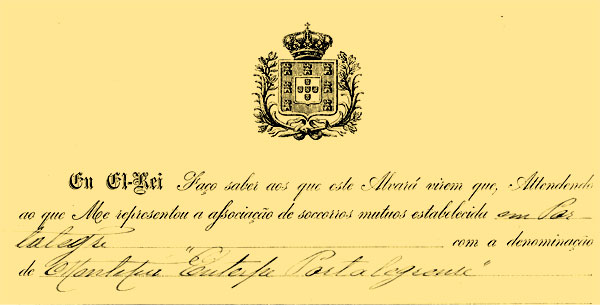 Eu El-Rei Faço saber aos que este Alvará virem que, Attendendo
ao que Me representou a associação de soccorros mutuos estabelecida em Por-
talegre com a denominação
de Montepio "Euterpe Portalegrense"